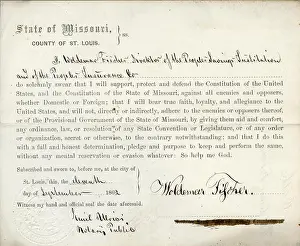 State of Missouri,
COUNTY OF ST. LOUIS. } ss.
I Woldemar Fischer Director of the Peoples Savings Institution
and of the Peoples Insurance Co
do solemnly swear that I will support, protect and defend the Constitution of the United
States, and the Constitution of the State of Missouri, against all enemies and opposers,
whether Domestic or Foreign; that I will bear true faith, loyalty, and allegiance to the
United States, and will not, directly or indirectly, adhere to the enemies or opposers thereof,
or of the Provisional Government of the State of Missouri, by giving them aid and comfort,
any ordinance, law, or resolution of any State Convention or Legislature, or of any order
or organization, secret or otherwise, to the contrary notwithstanding; and that I do this
with a full and honest determination, pledge and purpose to keep and perform the same,
without any mental reservation or evasion whatever. So help me God.
Subscribed and sworn to, before me, at the city of
St. Louis, this the
day of September 186
Woldemar Fischer.
Witness my hand and official seal the date aforesaid.
Notary Public